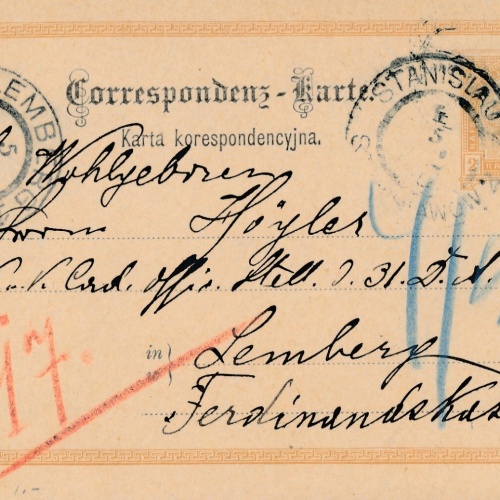 Correspondenz-Karte.
Karta korespondencyjna.
LEMB
5
STANISLAU
5
2
Wohlgeboren
Herrn Höyler
k. k. Cad. Offic. Stell. d. 31. D. A.
in
w
Lemberg
Ferdinandskas